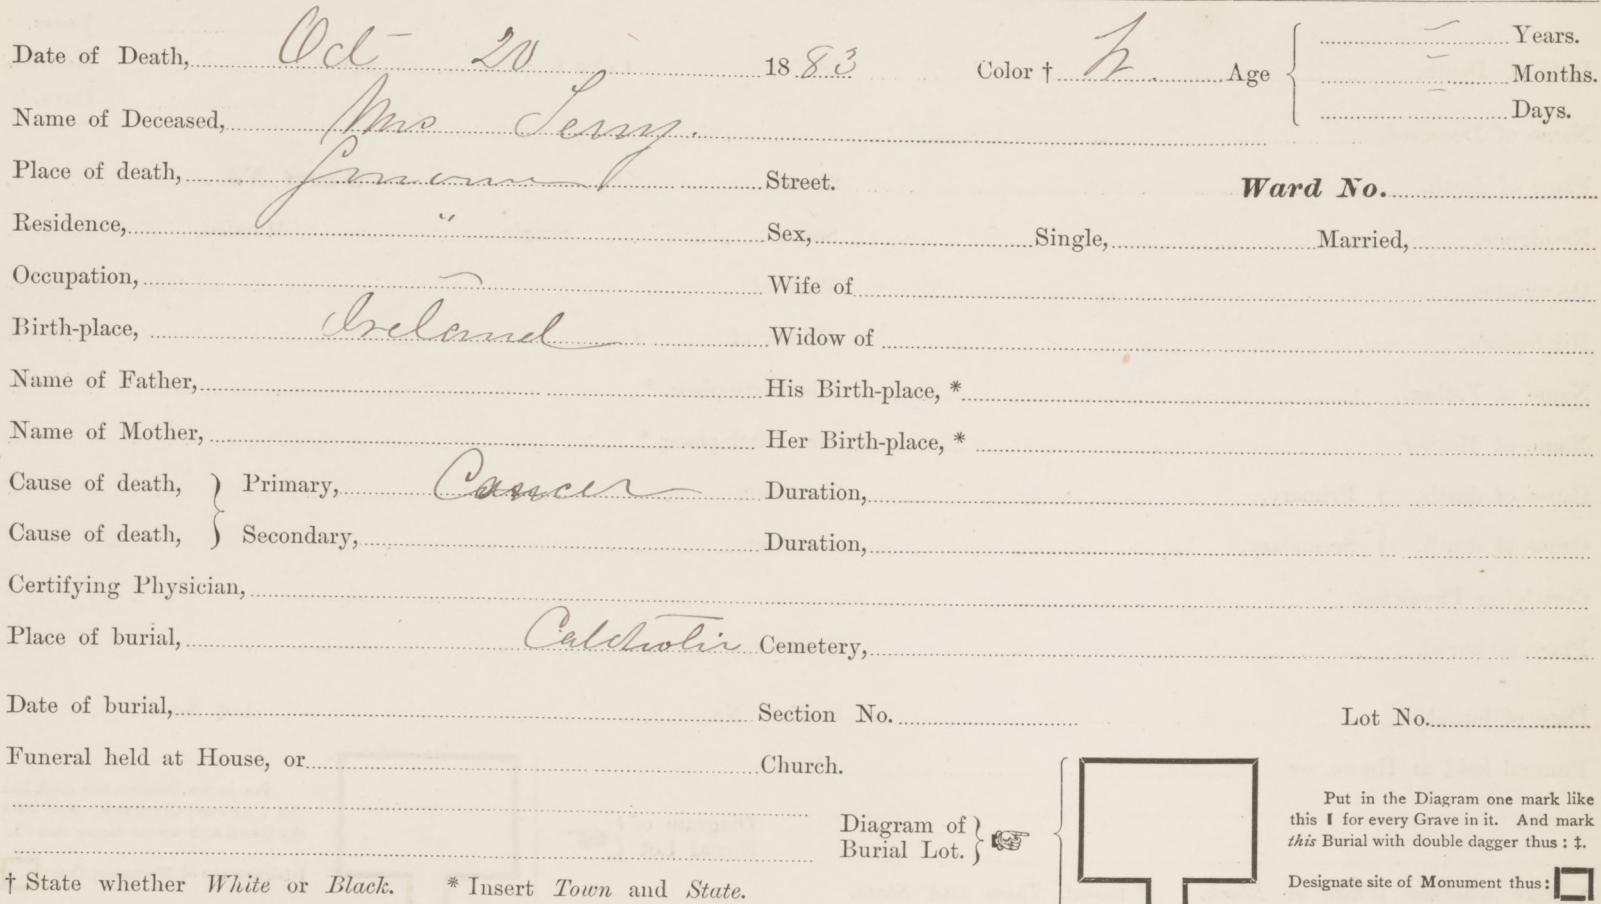 Date of Death, Oct 20 1883 Color † W. Age — Years.
— Months.
— Days.
Name of Deceased, Mrs Terry.
Place of death, Street. Ward No.
Residence, " Sex, Single, Married,
Occupation, — Wife of
Birth-place, Ireland Widow of
Name of Father, His Birth-place, *
Name of Mother, Her Birth-place, *
Cause of death, } Primary, Cancer Duration,
Cause of death, } Secondary, Duration,
Certifying Physician,
Place of burial, Catholic Cemetery,
Date of burial, Section No. Lot No.
Funeral held at House, or Church.
Diagram of Burial Lot. }
Put in the Diagram one mark like
this I for every Grave in it. And mark
this Burial with double dagger thus : ‡.
Designate site of Monument thus :
† State whether White or Black. * Insert Town and State.